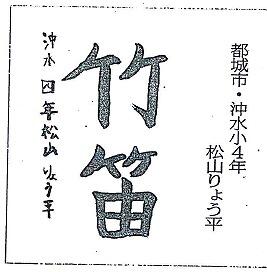 都城市・沖水小4年
松山りょう平
竹笛
沖水四年松山りょう平